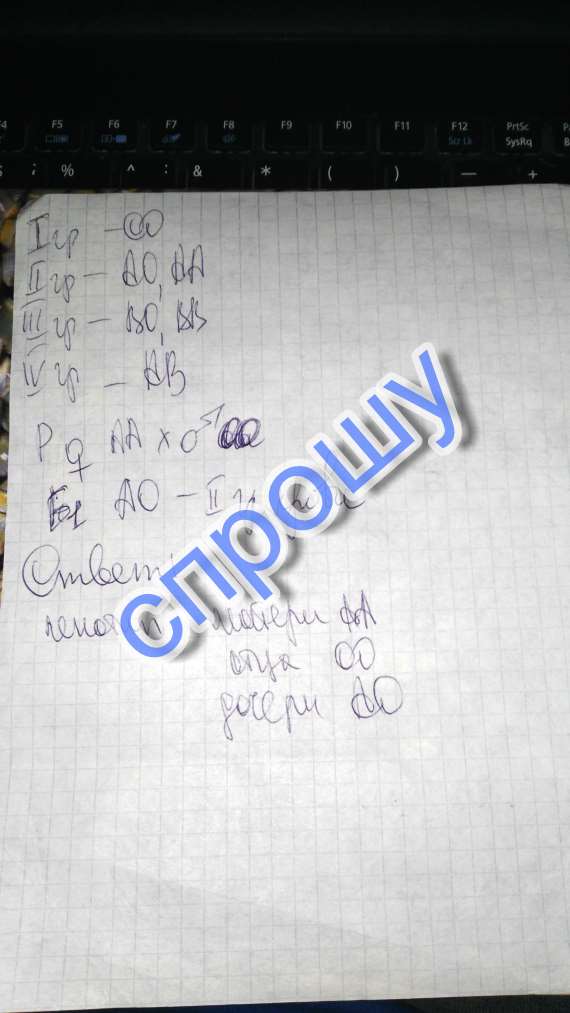 F4 F5 F6 F7 F8 F9 F10 F11 F12 PrtSc
Scr Lk SysRq
; % ^ : & * ( ) — +
I гр – OO
II гр – AO, AA
III гр – BO, BB
IV гр – AB
P ♀ AA x ♂ OO
F1 AO – II гр. крови
Ответ:
генотип матери AA
отца OO
дочери AO
спрошу